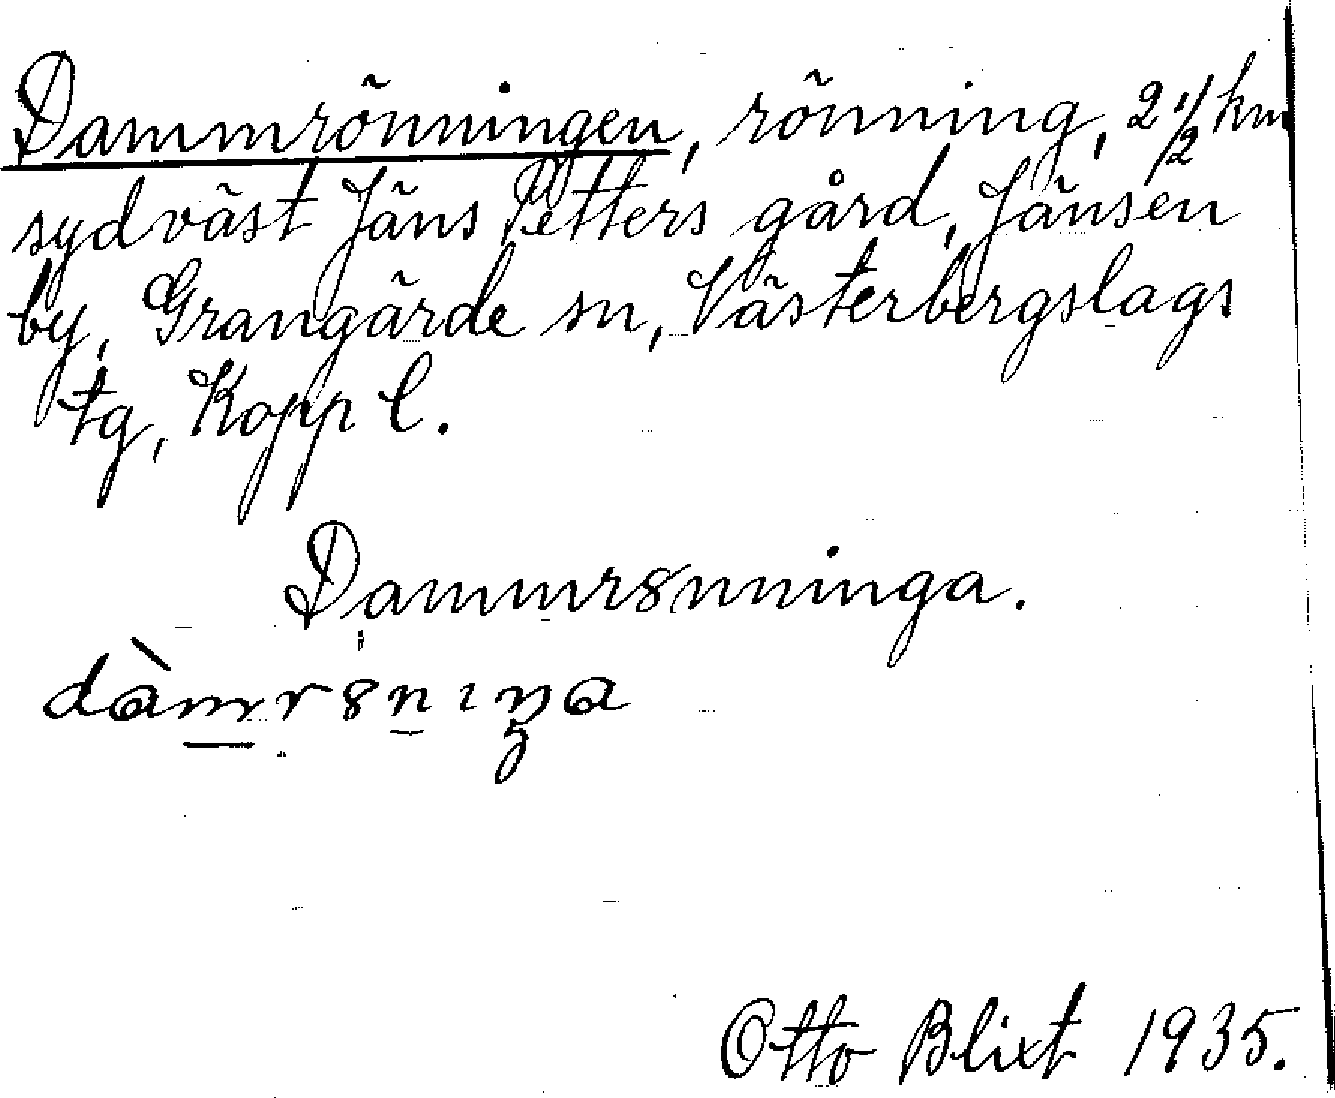 Dammrönningen, rönning, 2 1/2 km
sydväst Jäns Petters gård, Jänsen
by, Grangärde sn, Västerbergslags
tg, Kopp l.
Dammr8nninga.
dàmr8nıŋa
Otto Blixt 1935.